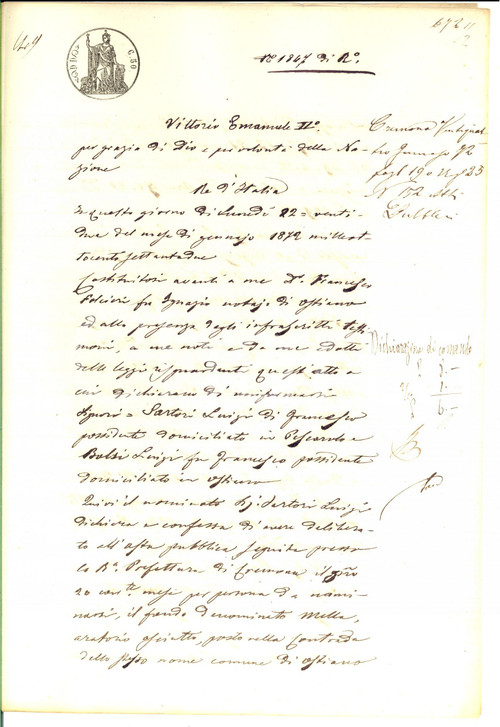 672
N° 1867 di R°.
Vittorio Emanuele II°.
per grazia di Dio e per volontà della Na-
zione
Re d'Italia
In questo giorno di Lunedì 22 = venti-
due del mese di gennajo 1872 milleot-
tocento settantadue
Costituitosi avanti a me Dr. Francesco
fu Ignazio notajo di Ostiano
ed alla presenza degli infrascritti testi-
monj, a me noti e da me edotti
delle leggi risguardanti quest'atto a
cui dichiarano di uniformarsi
Signori = Sartori Luigi di Francesco
possidente domiciliato in Pescarolo e
Luigi fu Francesco possidente
domiciliato in Ostiano
Quivi il nominato Sartori Luigi
dichiara e confessa di avere delibera-
to all'asta pubblica seguita presso
la R. Prefettura di Cremona il giorno
20 corr.te mese per persona da nomi-
narsi, il fondo denominato Mella,
aratorio posto nella Contrada
dello stesso nome comune di Ostiano
Cremona
N 172 Atti
Pubblici
Dichiarazione di comando